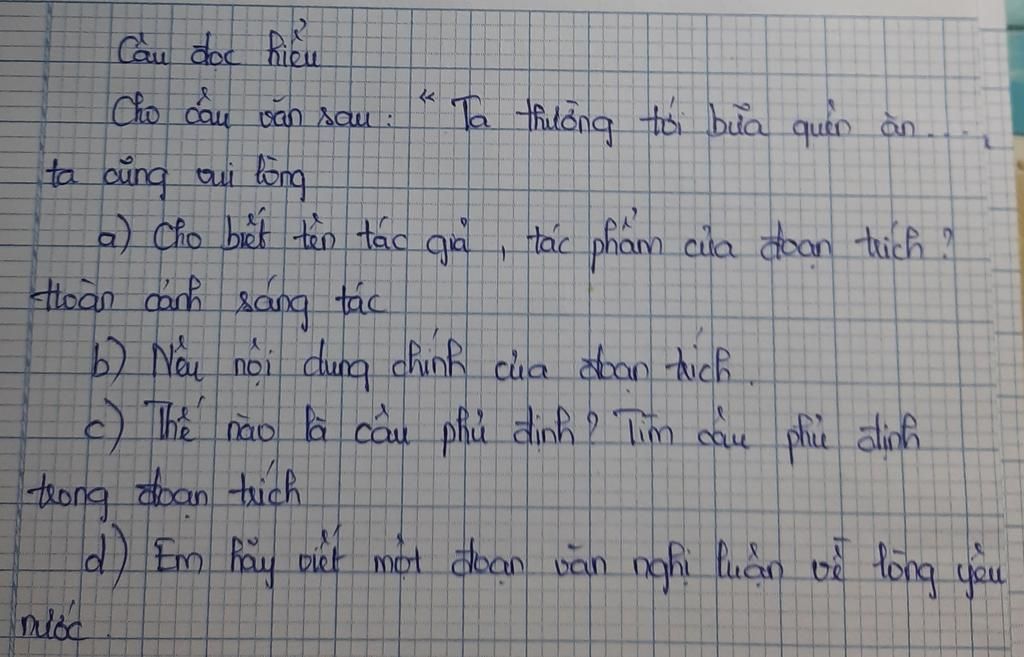 Câu đọc hiểu
Cho câu văn sau: " Ta thường tới bữa quên ăn....,
ta cũng vui lòng
a) Cho biết tên tác giả, tác phẩm của đoạn trích?
Hoàn cảnh sáng tác
b) Nêu nội dung chính của đoạn trích.
c) Thế nào là câu phủ định? Tìm câu phủ định
trong đoạn trích
d) Em hãy viết một đoạn văn nghị luận về lòng yêu
nước.